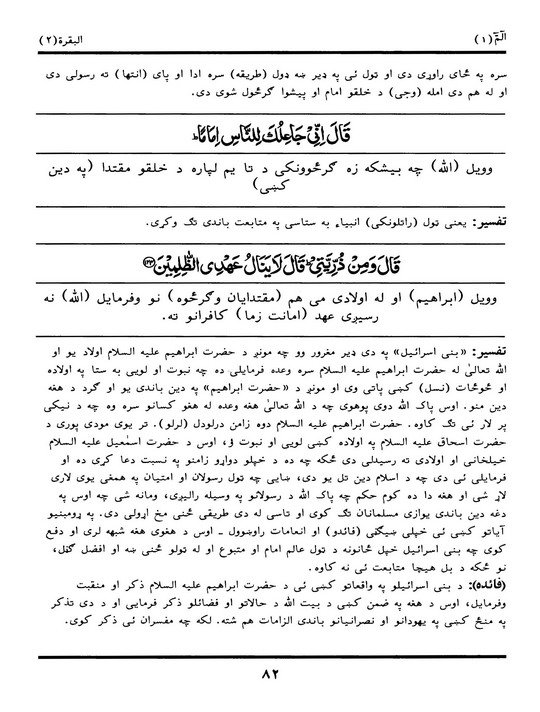 الٓمّٓ (۱)
البقرة (۲)
سره په ځای راوړی دی او ټول ئی په ډیر ښه ډول (طریقه) سره ادا او پای (انتها) ته رسولی دی
او له هم دی امله (وجی) د خلقو امام او پیشوا ګرځول شوی دی.
قَالَ اِنِّیْ جَاعِلُكَ لِلنَّاسِ اِمَامًا
وویل (الله) چه بیشکه زه ګرځوونکی د تا یم لپاره د خلقو مقتدا (په دین
کښی)
تفسیر: یعنی ټول (راتلونکی) انبیاء به ستاسی په متابعت باندی تګ وکړی.
قَالَ وَمِنْ ذُرِّیَّتِیْ قَالَ لَا یَنَالُ عَهْدِی الظّٰلِمِیْنَ ﴿۱۲۴﴾
وویل (ابراهیم) او له اولادی می هم (مقتدایان وګرځوه) نو وفرمایل (الله) نه
رسیږی عهد (امانت زما) کافرانو ته.
تفسیر: «بنی اسرائیل» په دی ډیر مغرور وو چه مونږ د حضرت ابراهیم علیه السلام اولاد یو او
الله تعالیٰ له حضرت ابراهیم علیه السلام سره وعده فرمایلی ده چه نبوت او لویی به ستا په اولاده
او ځوځات (نسل) کښی پاتی وی او مونږ د «حضرت ابراهیم» په دین باندی یو او ګرد د هغه
دین منو. اوس پاک الله دوی پوهوی چه د الله تعالیٰ هغه وعده له هغو کسانو سره وه چه د نیکی
پر لار ئی تګ کاوه. حضرت ابراهیم علیه السلام دوه زامن درلودل (لرلو). تر یوی مودی پوری د
حضرت اسحاق علیه السلام په اولاده کښی لویی او نبوت ؤ، اوس د حضرت اسمٰعیل علیه السلام
خیلخانی او اولادی ته رسیدلی دی ځکه چه ده د خپلو دواړو زامنو په نسبت دعا کړی ده او
فرمایلی ئی دی چه د اسلام دین تل یو دی، ښایی چه ټول رسولان او امتیان په همغی یوی لاری
لاړ شی او هغه دا ده کوم حکم چه پاک الله د رسولانو په وسیله رالیږی، ومانه شی چه اوس په
دغه دین باندی یوازی مسلمانان تګ کوی او تاسی له دی طریقی ځنی مخ اړولی دی. په ړومبنیو
آیاتو کښی ئی خپلی ښیګڼی (فائدو) او انعامات راوښوول ـ اوس د هغوی هغه شبهه لری او دفع
کوی چه بنی اسرائیل خپل ځانونه د ټول عالم امام او متبوع او له ټولو ځنی ښه او افضل ګڼل،
نو ځکه د بل هیچا متابعت ئی نه کاوه.
(فائده): د بنی اسرائیلو په واقعاتو کښی ئی د حضرت ابراهیم علیه السلام ذکر او منقبت
وفرمایل، اوس د هغه په ضمن کښی د بیت الله د حالاتو او فضائلو ذکر فرمایی او د دی تذکر
په منځ کښی په یهودانو او نصرانیانو باندی الزامات هم شته. لکه چه مفسران ئی ذکر کوی.
۸۲